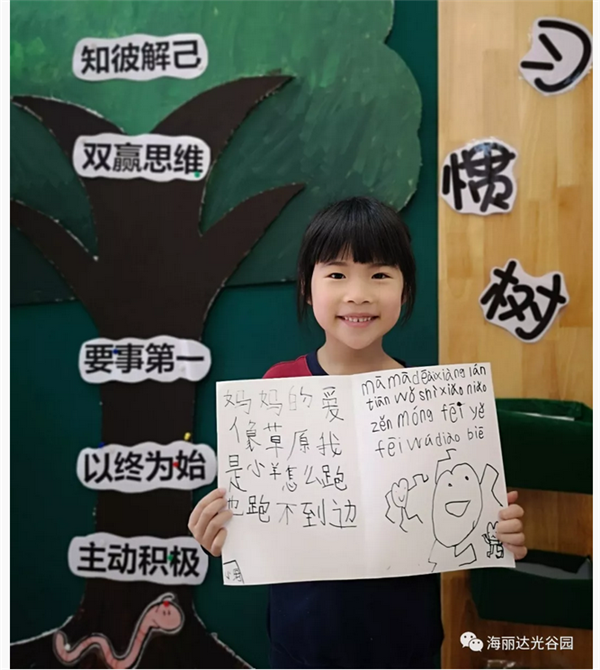 知彼解己
双赢思维
要事第一
以终为始
主动积极
习
惯
树
妈妈的爱
像草原我
是小羊怎么跑
也跑不到边
mā mā de ài xiàng lán
tiān wǒ shì xiǎo niǎo
zěn móng fēi yě
fēi bú dào biē
海丽达光谷园